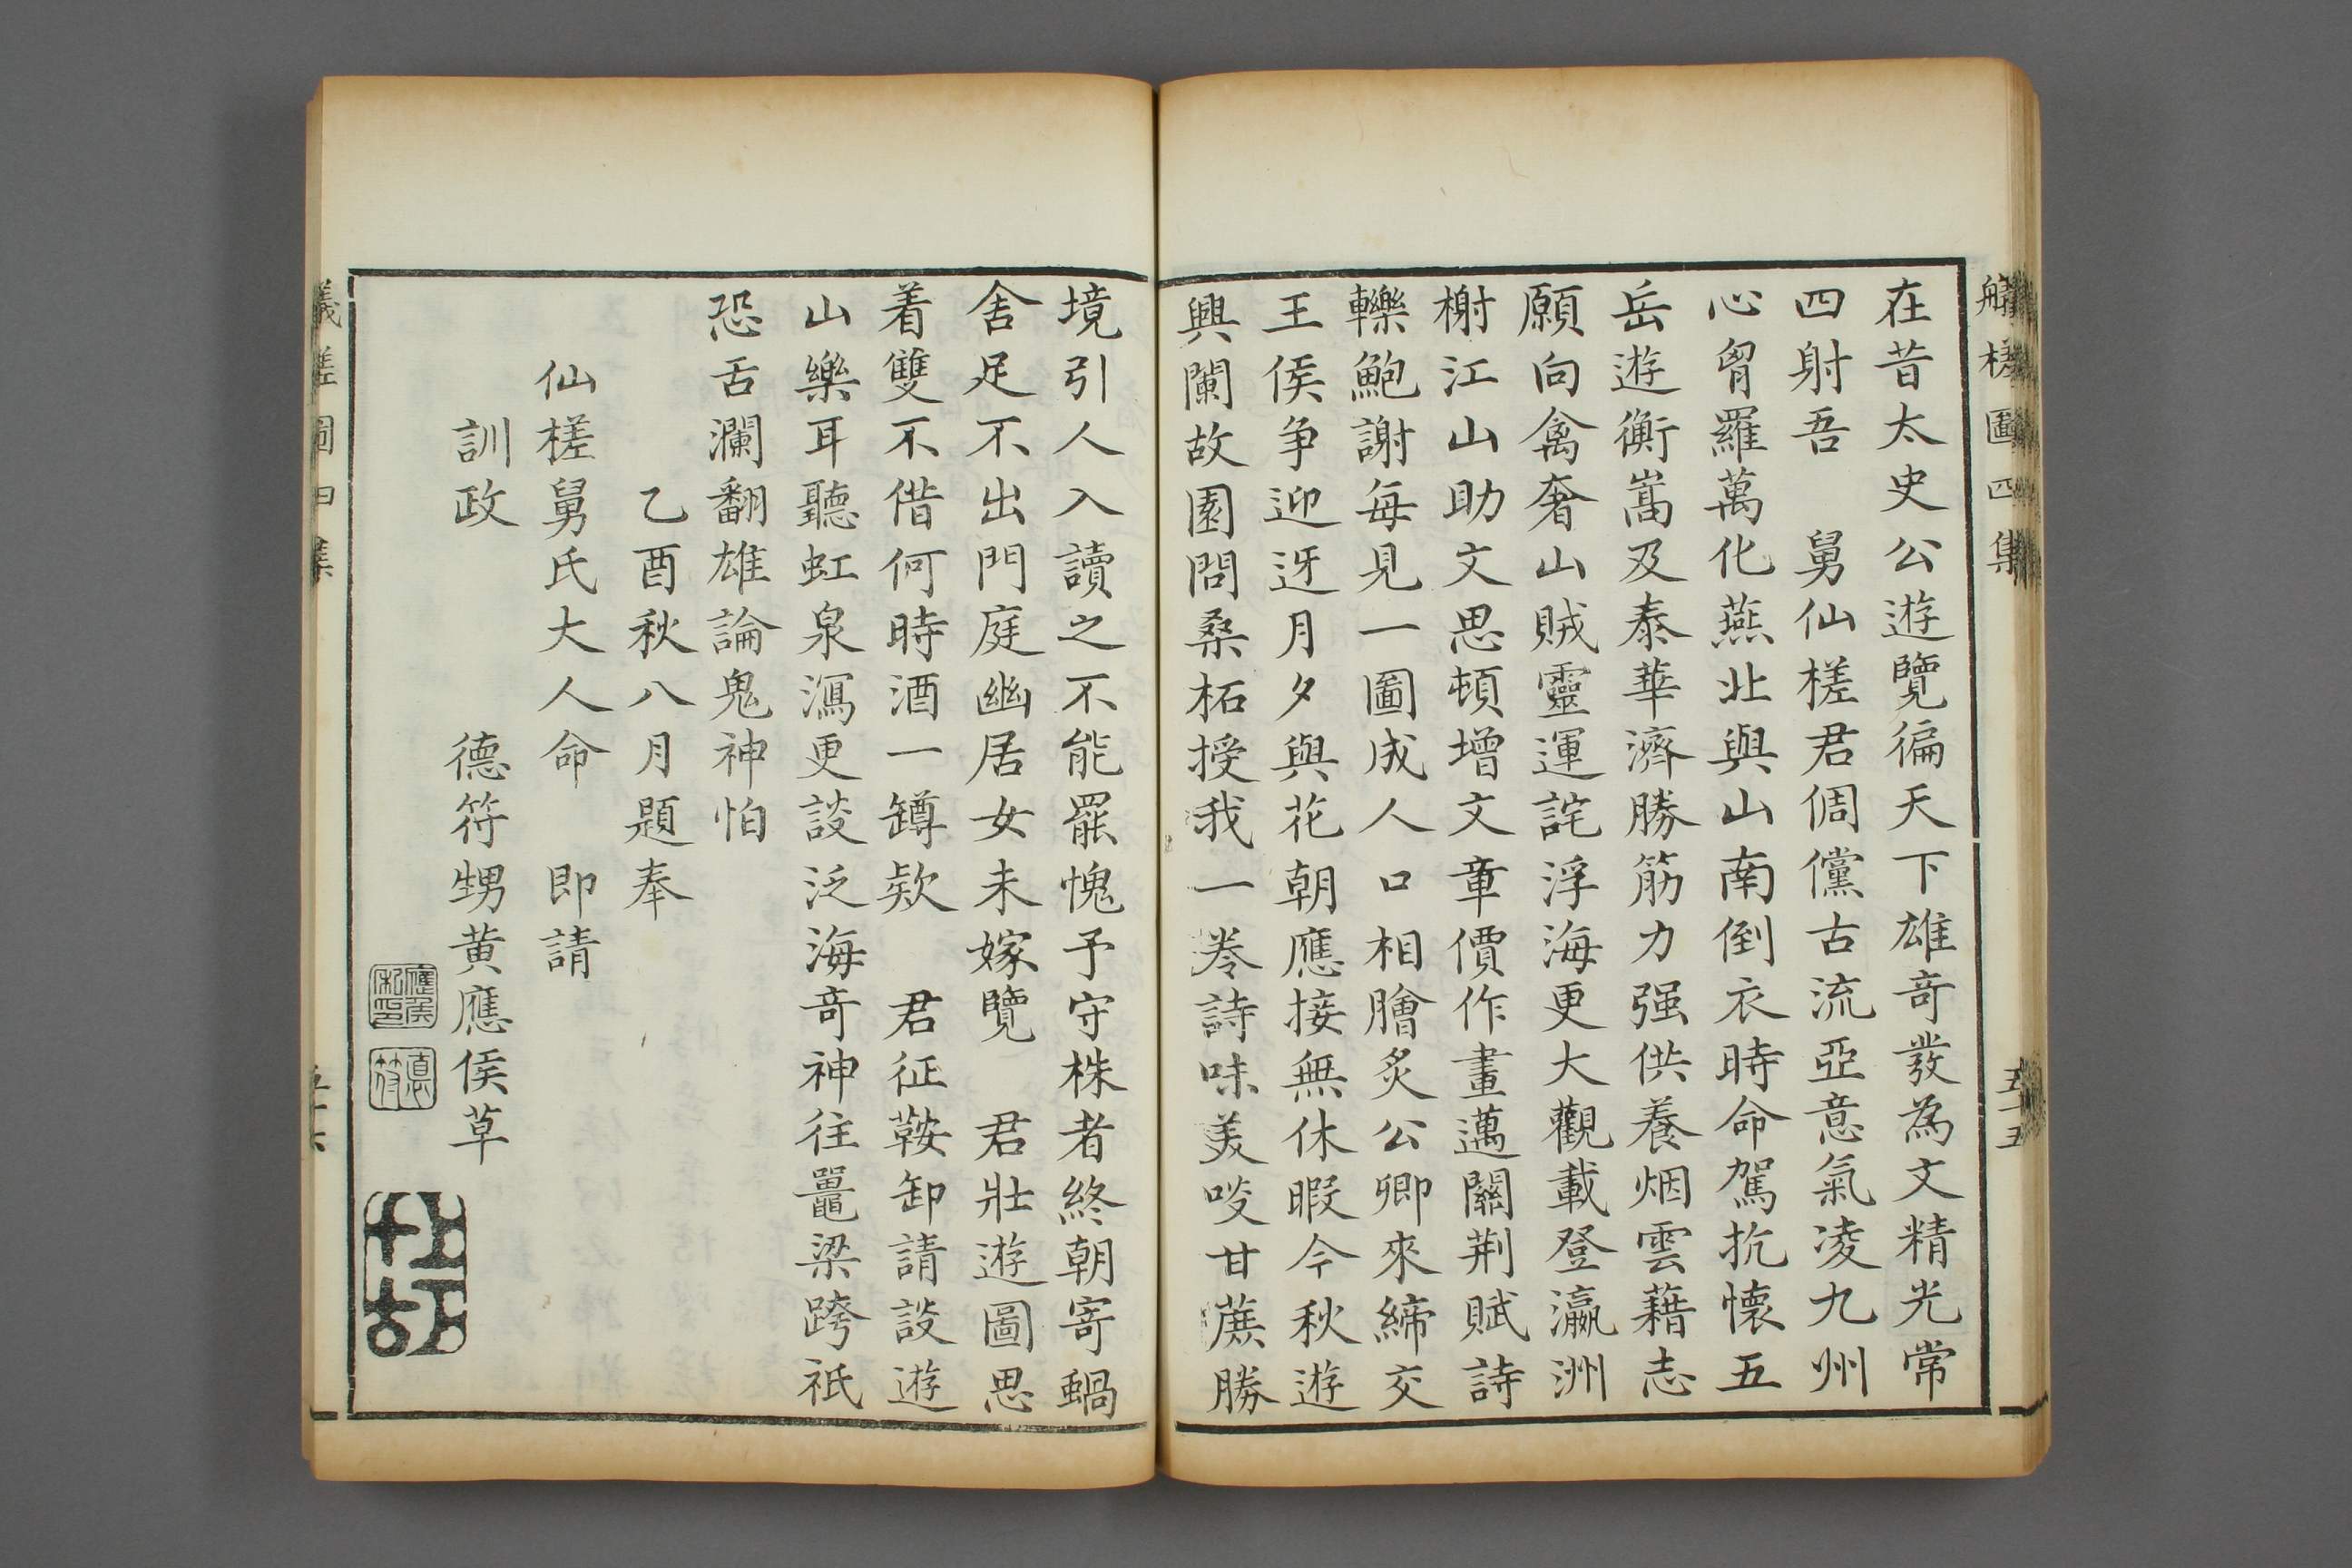 艤槎圖四集
五十五
在昔太史公遊覽徧天下雄奇發為文精光常
四射吾 舅仙槎君倜儻古流亞意氣凌九州
心胷羅萬化燕北與山南倒衣時命駕抗懷五
岳遊衡嵩及泰華濟勝筋力强供養烟雲藉志
願向禽奢山賊靈運詫浮海更大觀載登瀛洲
榭江山助文思頓增文章價作畫邁關荆賦詩
轢鮑謝每見一圖成人口相膾炙公卿來締交
王侯争迎迓月夕與花朝應接無休暇今秋遊
興闌故園問桑柘授我一卷詩味美啖甘蔗勝
境引人入讀之不能罷愧予守株者終朝寄蝸
舍足不出門庭幽居女未嫁覽 君壯遊圖思
着雙不借何時酒一罇欵 君征鞍卸請談遊
山樂耳聽虹泉瀉更談泛海奇神往鼉梁跨祇
恐舌瀾翻雄論鬼神怕
乙酉秋八月題奉
仙槎舅氏大人命 即請
訓政
德符甥黄應侯草
應侯私印
德符
艤槎圖四集
五十六